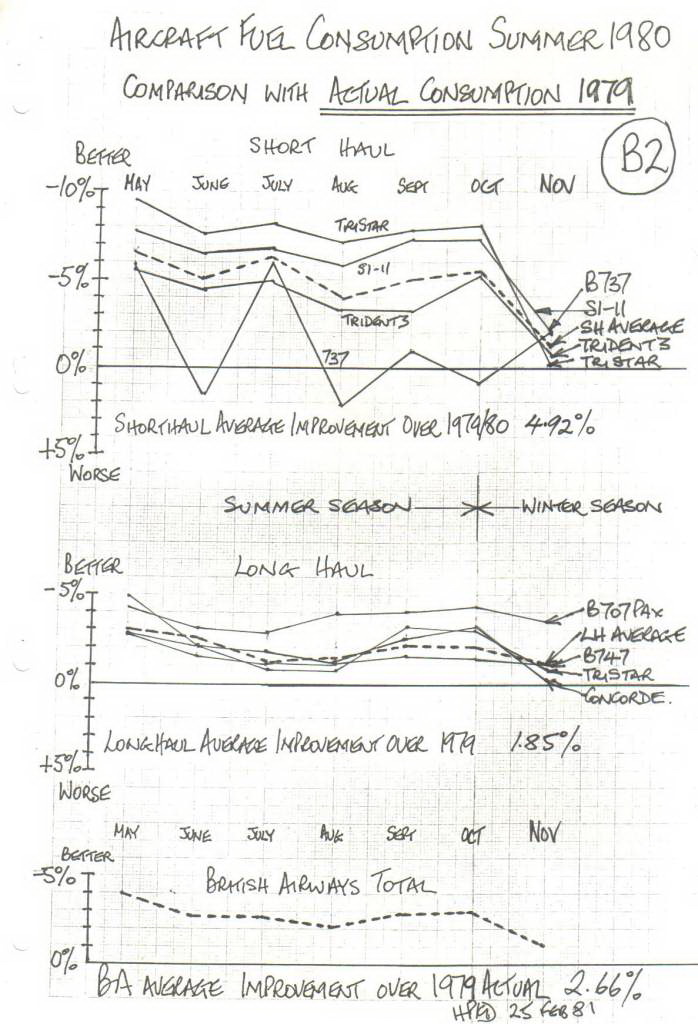 AIRCRAFT FUEL CONSUMPTION SUMMER 1980
COMPARISON WITH ACTUAL CONSUMPTION 1979
B2
SHORT HAUL
BETTER
MAY JUNE JULY AUG SEPT OCT NOV
-10%
TRISTAR
S1-11
-5%
TRIDENT 3
737
0%
B737
S1-11
SH AVERAGE
TRIDENT 3
TRISTAR
SHORTHAUL AVERAGE IMPROVEMENT OVER 1979/80 4.92%
+5%
WORSE
SUMMER SEASON WINTER SEASON
BETTER
LONG HAUL
-5%
B707 PAX
LH AVERAGE
B747
TRISTAR
CONCORDE.
0%
LONGHAUL AVERAGE IMPROVEMENT OVER 1979 1.85%
+5%
WORSE
MAY JUNE JULY AUG SEPT OCT NOV
BETTER
-5%
BRITISH AIRWAYS TOTAL
0%
BA AVERAGE IMPROVEMENT OVER 1979 ACTUAL 2.66%
25 FEB 81